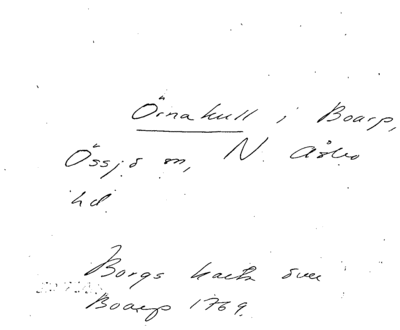 Örnakull i Boarp,
Össjö sn, N. Åsbo
hd.
Borgs karta över
Boarp 1769.